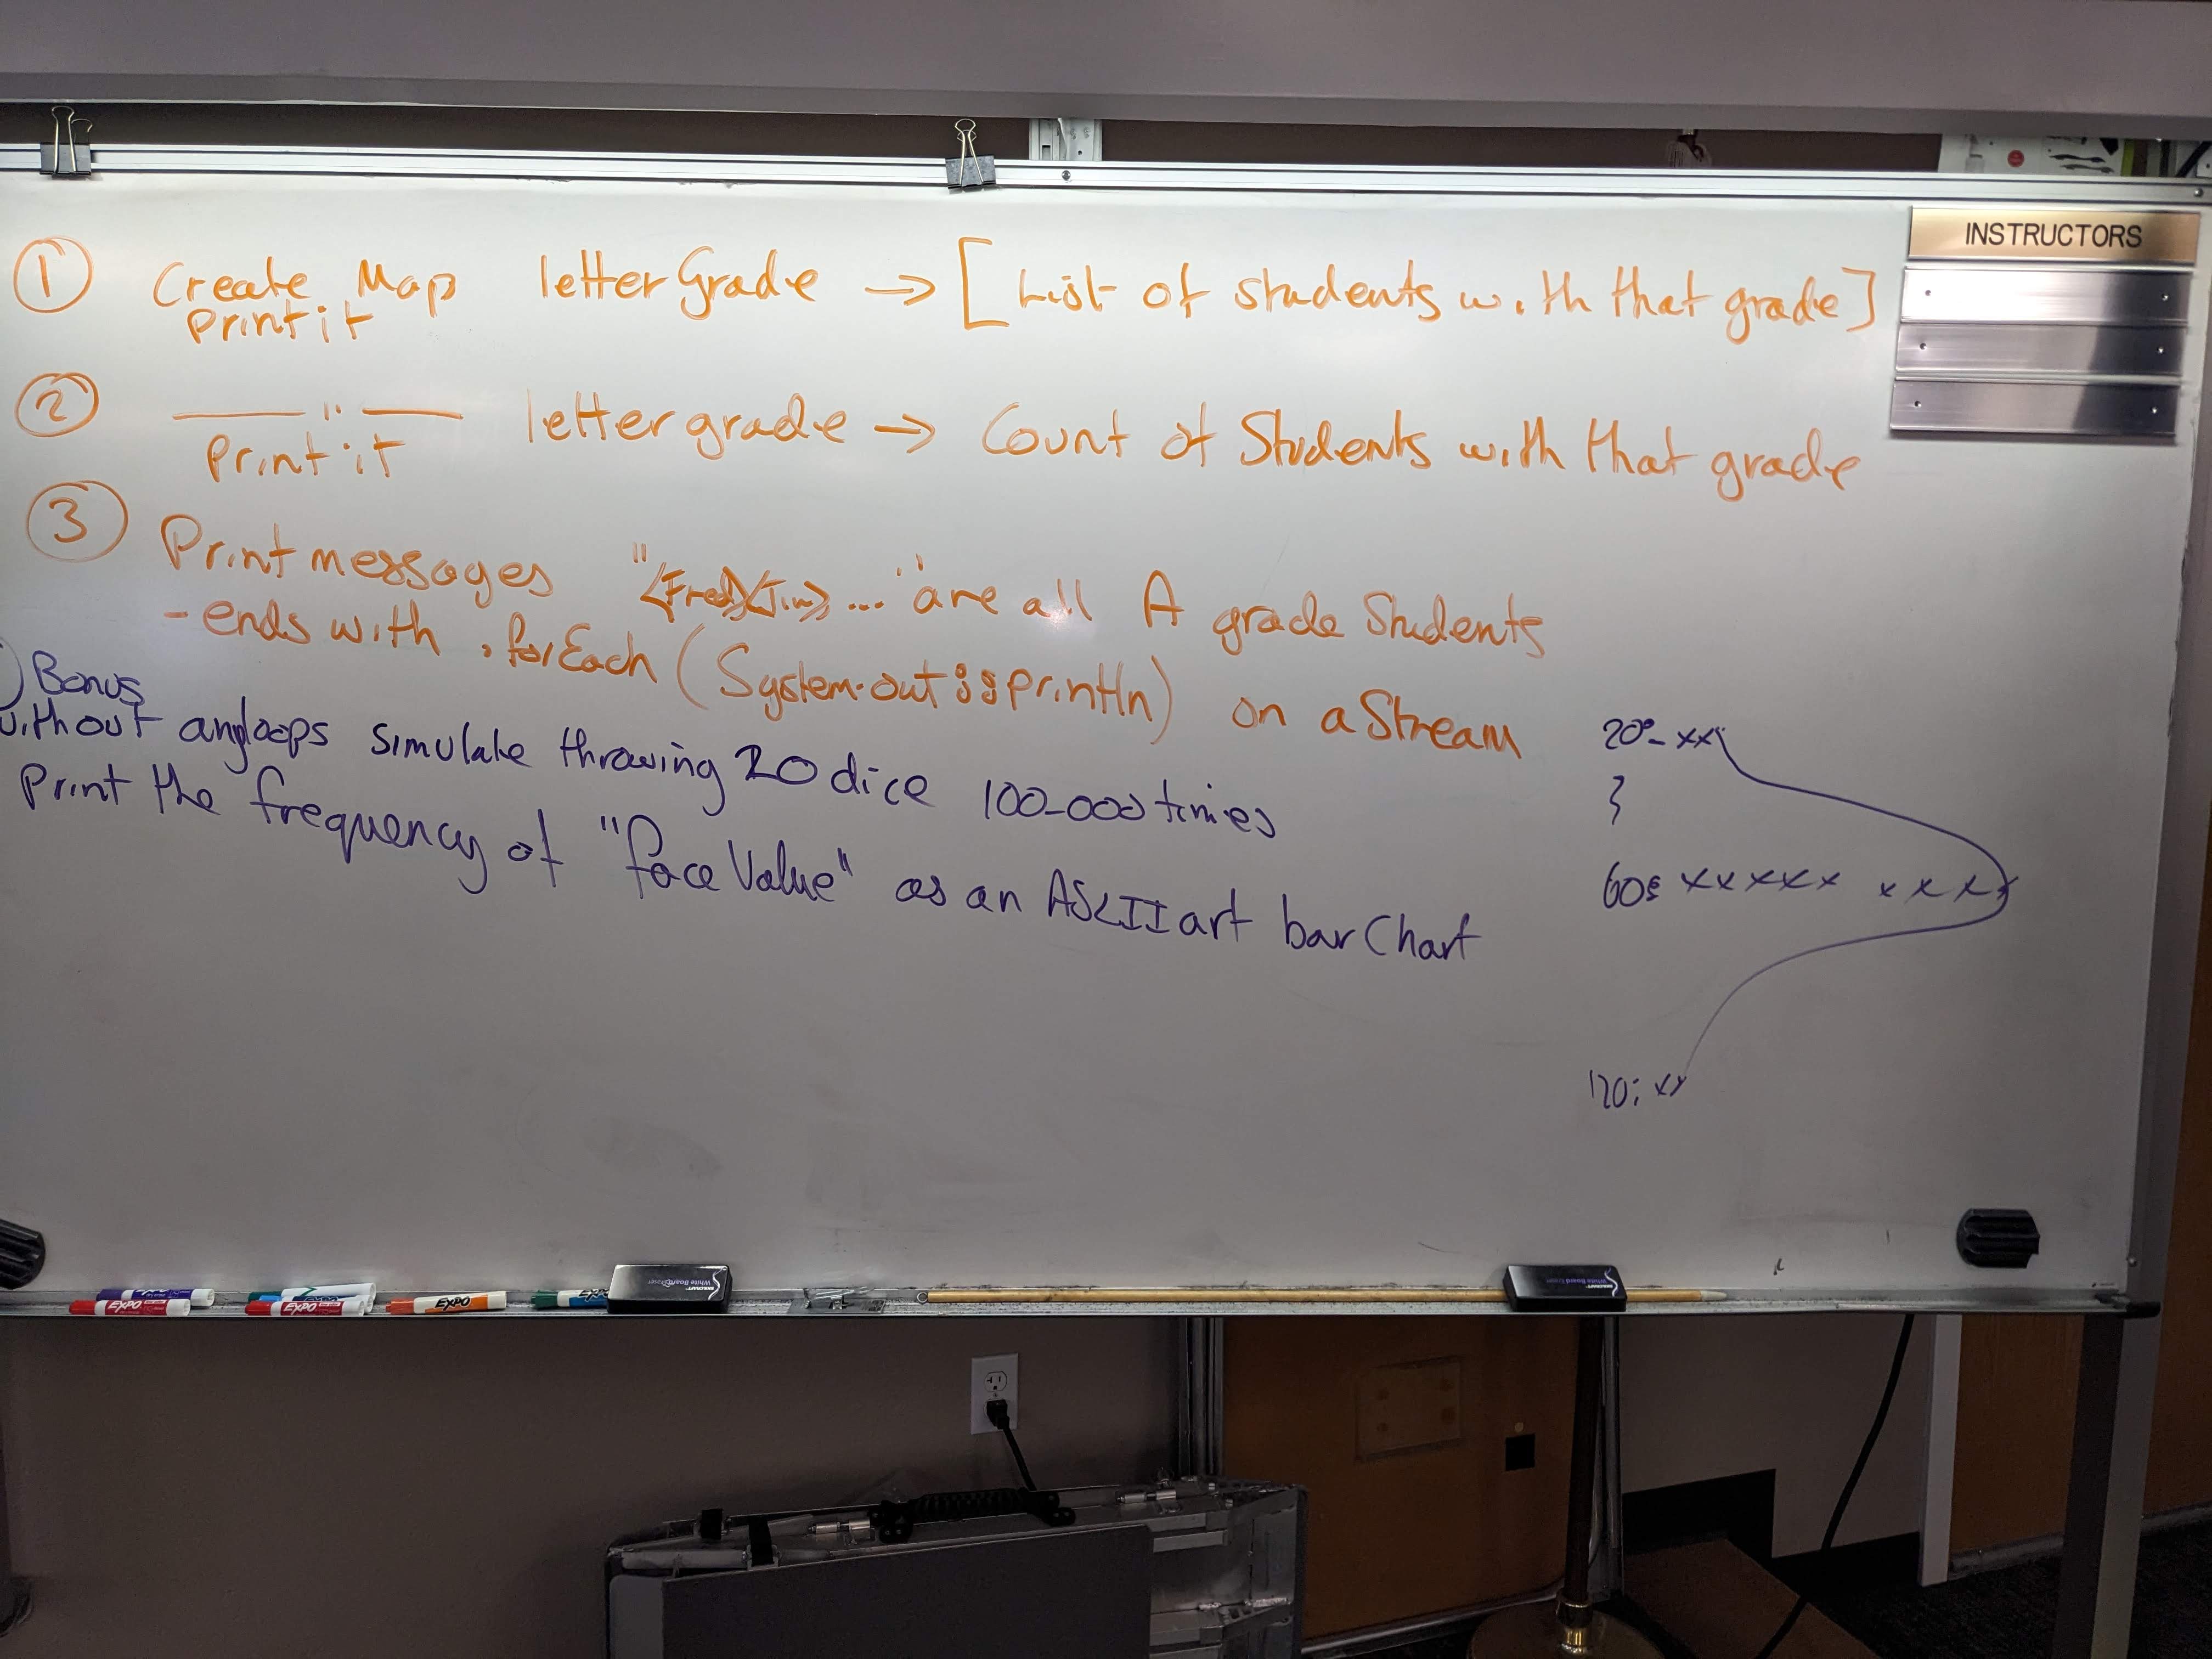 INSTRUCTORS
① Create Map letterGrade → [List of students with that grade]
Print it
② —— " —— letter grade → Count of Students with that grade
Print it
③ Print messages "<Fred><Jim>..." are all A grade Students
- ends with .forEach(System.out::println) on a Stream
) Bonus
without any loops simulate throwing 20 dice 100_000 times
Print the frequency of "face Value" as an ASCII art bar Chart
20: xxx
60: xxxxx xxxx
120: xx
EXPO
EXPO
EXPO
EXPO
White Board Eraser
White Board Eraser